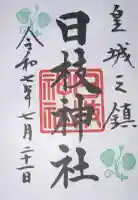 皇城之鎮
日枝神社
令和七年七月二十一日